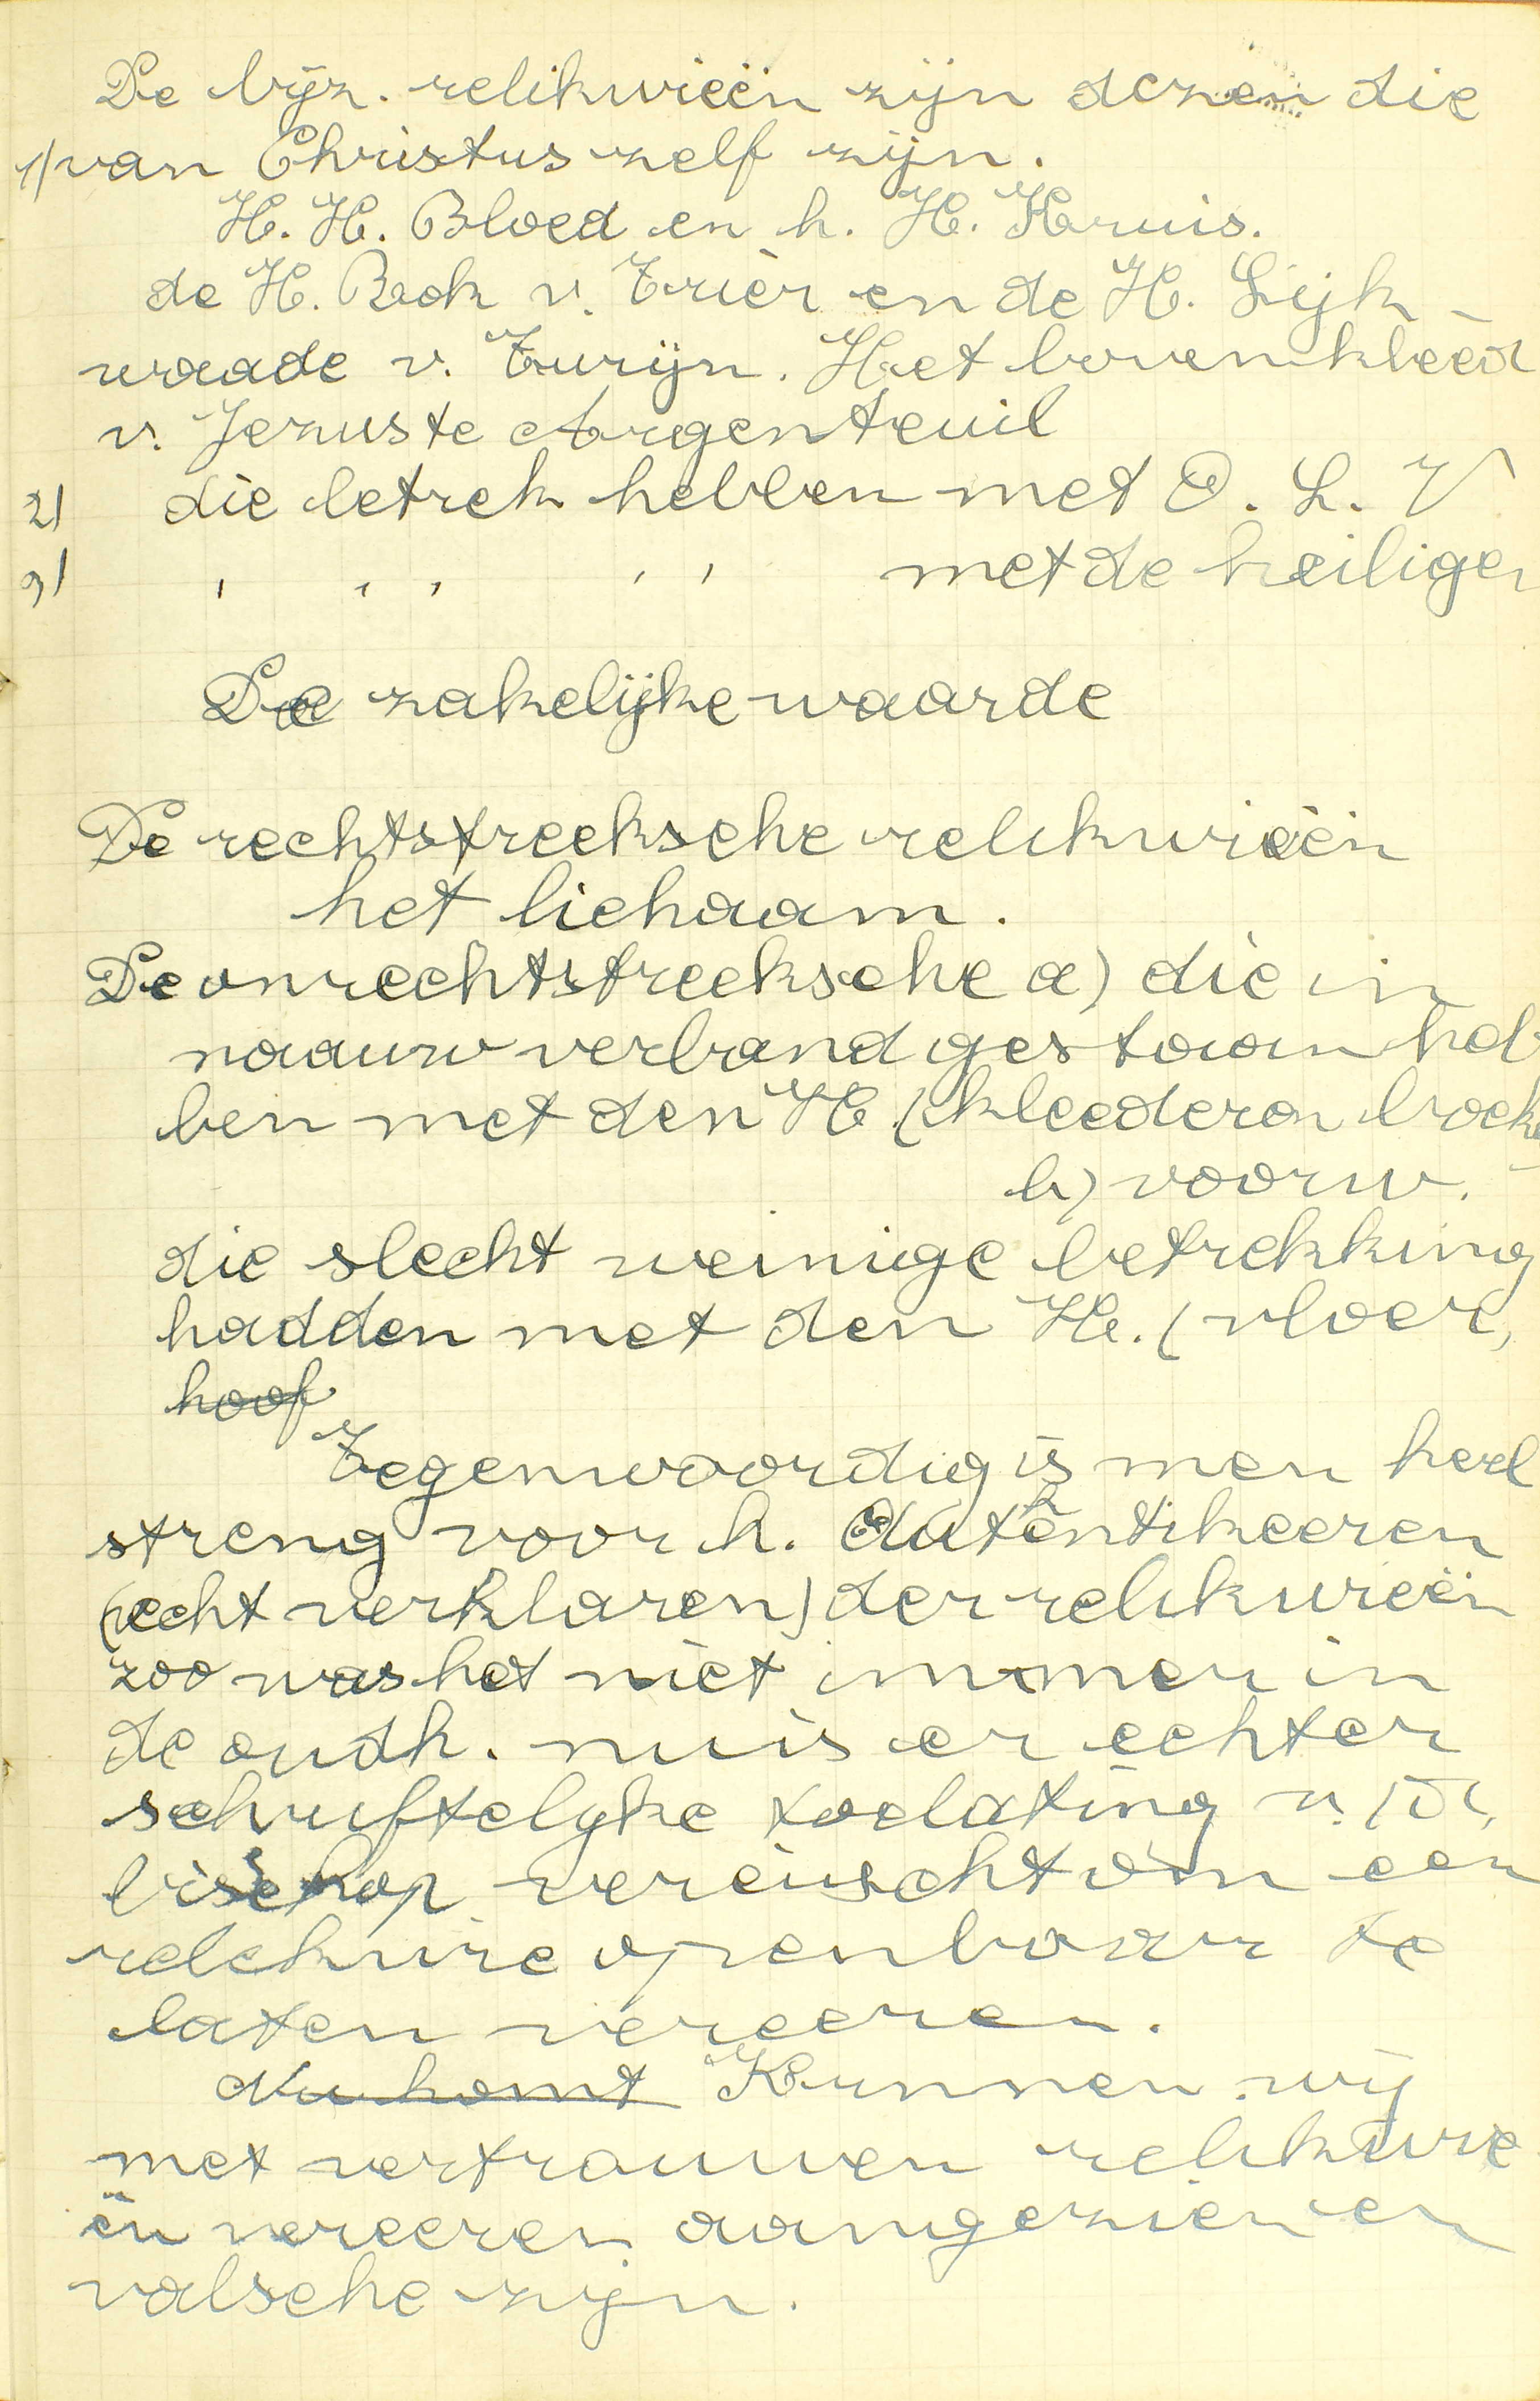 De bijz. relikwieën zijn dezen die
1) van Christus zelf zijn.
H. H. Bloed en h. H. Kruis.
de H. Rok v. Trier en de H. Lijk-
waade v. Turijn. Het bovenkleed
v. Jezus te Argenteuil
2) die betrek hebben met O. L. V
3) ' ' ' ' ' met de heiligen
De zakelijke waarde
De rechtstreeksche relikwieën
het lichaam.
De onrechtstreeksche a) die in
naauw verband gestaan heb
ben met den H. (kleederen boek
b) voorw.
die slecht weinige betrekking
hadden met den H. (vloer,
hoof
Tegenwoordig is men heel
streng voor h. authentikeeren
(echt verklaren) der relikwieën
zoo was het niet immer in
de oudh. nu is er echter
schriftelyke toelating v.
bisschop vereischt om een
relekwie openbaar te
laten vereeren.
Nu komt Kunnen wij
met vertrouwen relikwie
ën vereeren aangezien er
valsche zijn.